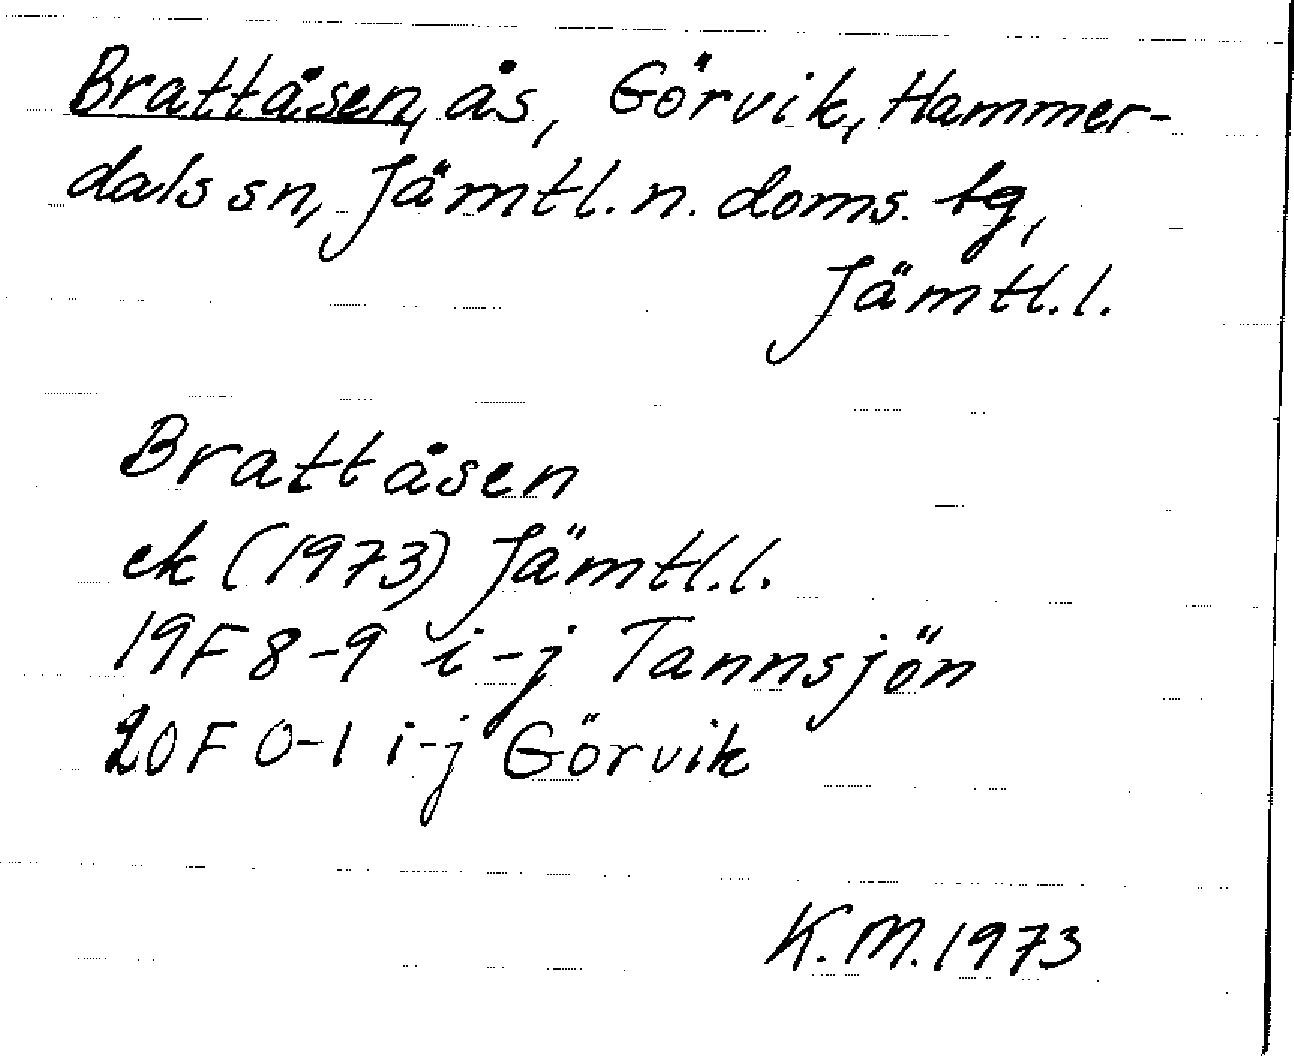 Brattåsen, ås, Görvik, Hammer-
dals sn, Jämtl. n. doms. tg,
Jämtl. l.
Brattåsen
ek (1973) Jämtl. l.
19F 8-9 i-j Tannsjön
20F 0-1 i-j Görvik
K. M. 1973